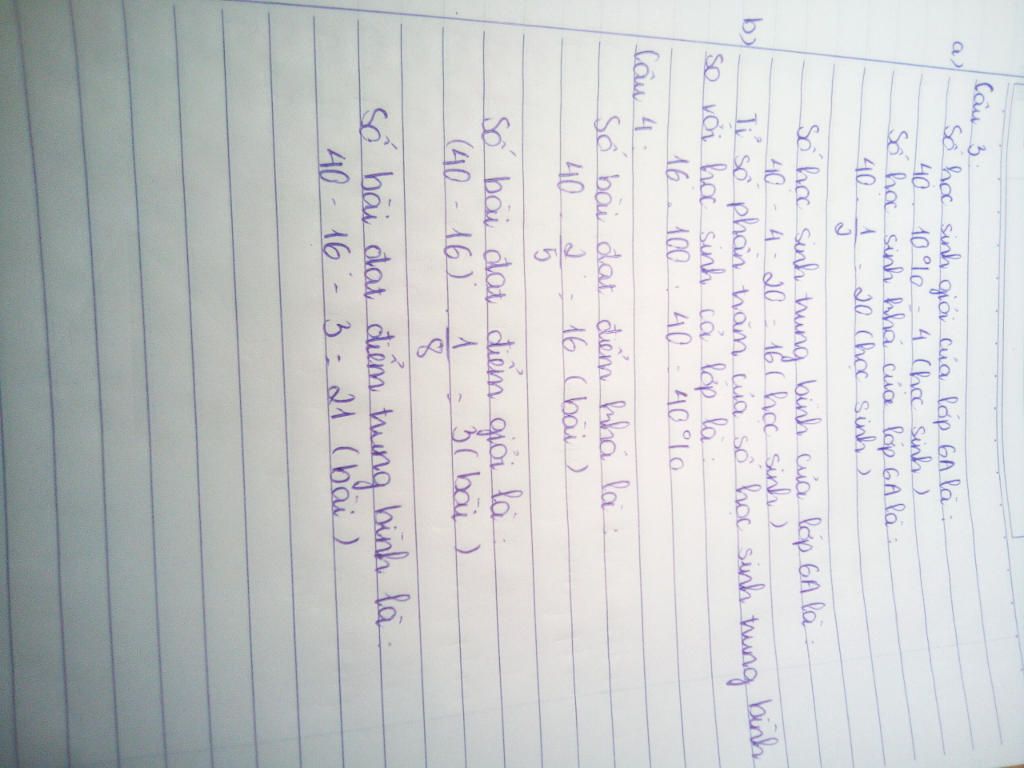 Câu 3.
a) Số học sinh giỏi của lớp 6A là:
40 . 10% = 4 (học sinh)
Số học sinh khá của lớp 6A là:
40 . 1/2 = 20 (học sinh)
Số học sinh trung bình của lớp 6A là:
40 - 4 - 20 = 16 (học sinh)
b) Tỉ số phần trăm của số học sinh trung bình
so với học sinh cả lớp là:
16 . 100 : 40 = 40%
Câu 4.
Số bài đạt điểm khá là:
40 . 2/5 = 16 (bài)
Số bài đạt điểm giỏi là:
(40 - 16) . 1/8 = 3 (bài)
Số bài đạt điểm trung bình là:
40 - 16 - 3 = 21 (bài)